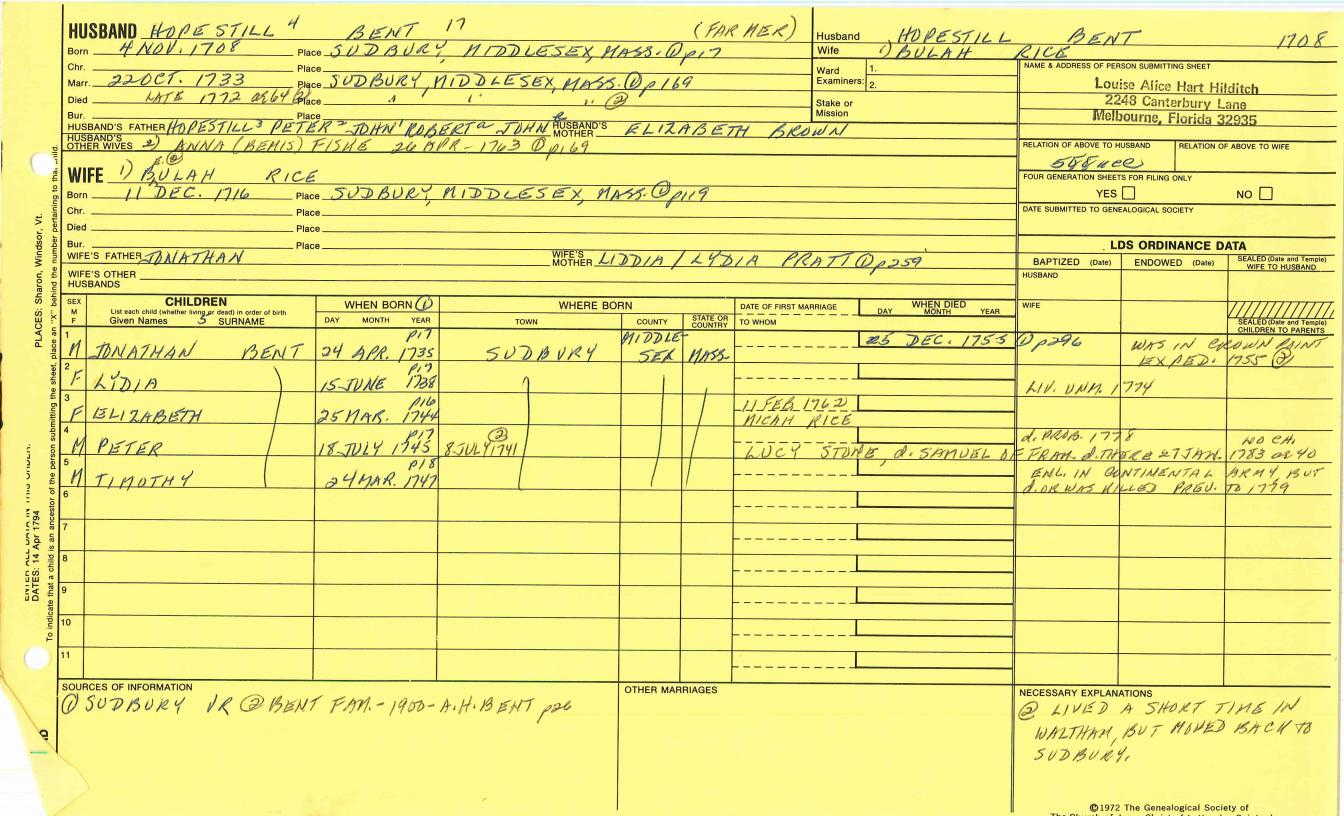 HUSBAND HOPESTILL 4 BENT 17 (FARMER)
Born 4 NOV. 1708 Place SUDBURY, MIDDLESEX, MASS. ① p17
Chr. Place
Marr. 22 OCT. 1733 Place SUDBURY, MIDDLESEX, MASS. ① p169
Died LATE 1772 ae 64 ② Place " " " ②
Bur. Place
HUSBAND'S FATHER HOPESTILL 3 PETER 2 JOHN 1 ROBERT a JOHN HUSBAND'S MOTHER ELIZABETH BROWN
HUSBAND'S OTHER WIVES 2) ANNA (BEMIS) FISKE 26 APR - 1763 ① p169
Husband HOPESTILL BENT 1708
Wife 1) BULAH RICE
Ward Examiners: 1.
2.
Stake or Mission
NAME & ADDRESS OF PERSON SUBMITTING SHEET
Louise Alice Hart Hilditch
2248 Canterbury Lane
Melbourne, Florida 32935
RELATION OF ABOVE TO HUSBAND RELATION OF ABOVE TO WIFE
FOUR GENERATION SHEETS FOR FILING ONLY
YES NO
DATE SUBMITTED TO GENEALOGICAL SOCIETY
WIFE 1) BULAH RICE
E ②
Born 11 DEC. 1716 Place SUDBURY, MIDDLESEX, MASS. ① p119
Chr. Place
Died Place
Bur. Place
WIFE'S FATHER JONATHAN WIFE'S MOTHER LIDDIA / LYDIA PRATT ① p259
WIFE'S OTHER HUSBANDS
LDS ORDINANCE DATA
BAPTIZED (Date) ENDOWED (Date) SEALED (Date and Temple) WIFE TO HUSBAND
HUSBAND
WIFE
SEALED (Date and Temple) CHILDREN TO PARENTS
SEX M F CHILDREN WHEN BORN ① WHERE BORN DATE OF FIRST MARRIAGE WHEN DIED
List each child (whether living or dead) in order of birth
Given Names 5 SURNAME DAY MONTH YEAR TOWN COUNTY STATE OR COUNTRY TO WHOM DAY MONTH YEAR
1 M JONATHAN BENT 24 APR. 1735 p17 SUDBURY MIDDLESEX MASS. 25 DEC. 1755 ① p296 WAS IN CROWN POINT EXPED. 1755 ②
2 F LYDIA 15 JUNE 1738 p17 LIV. UNM. 1774
3 F ELIZABETH 25 MAR. 1744 p16 11 FEB 1762 MICAH RICE
4 M PETER 18 JULY 1745 p17 8 JULY 1741 ② LUCY STONE, d. SAMUEL OF FRAM. d. THERE 27 JAN. 1783 ae 40 d. PROB. 1778 NO CH.
5 M TIMOTHY 24 MAR. 1747 p18 ENL. IN CONTINENTAL ARMY, BUT d. OR WAS KILLED PREV. TO 1779
6
7
8
9
10
11
SOURCES OF INFORMATION
① SUDBURY VR ② BENT FAM. - 1900 - A.H. BENT p26
OTHER MARRIAGES
NECESSARY EXPLANATIONS
② LIVED A SHORT TIME IN
WALTHAM, BUT MOVED BACK TO
SUDBURY.
©1972 The Genealogical Society of
PLACES: Sharon, Windsor, Vt.
DATES: 14 Apr 1794
To indicate that a child is an ancestor of the person submitting the sheet, place an "X" behind the number pertaining to that child.